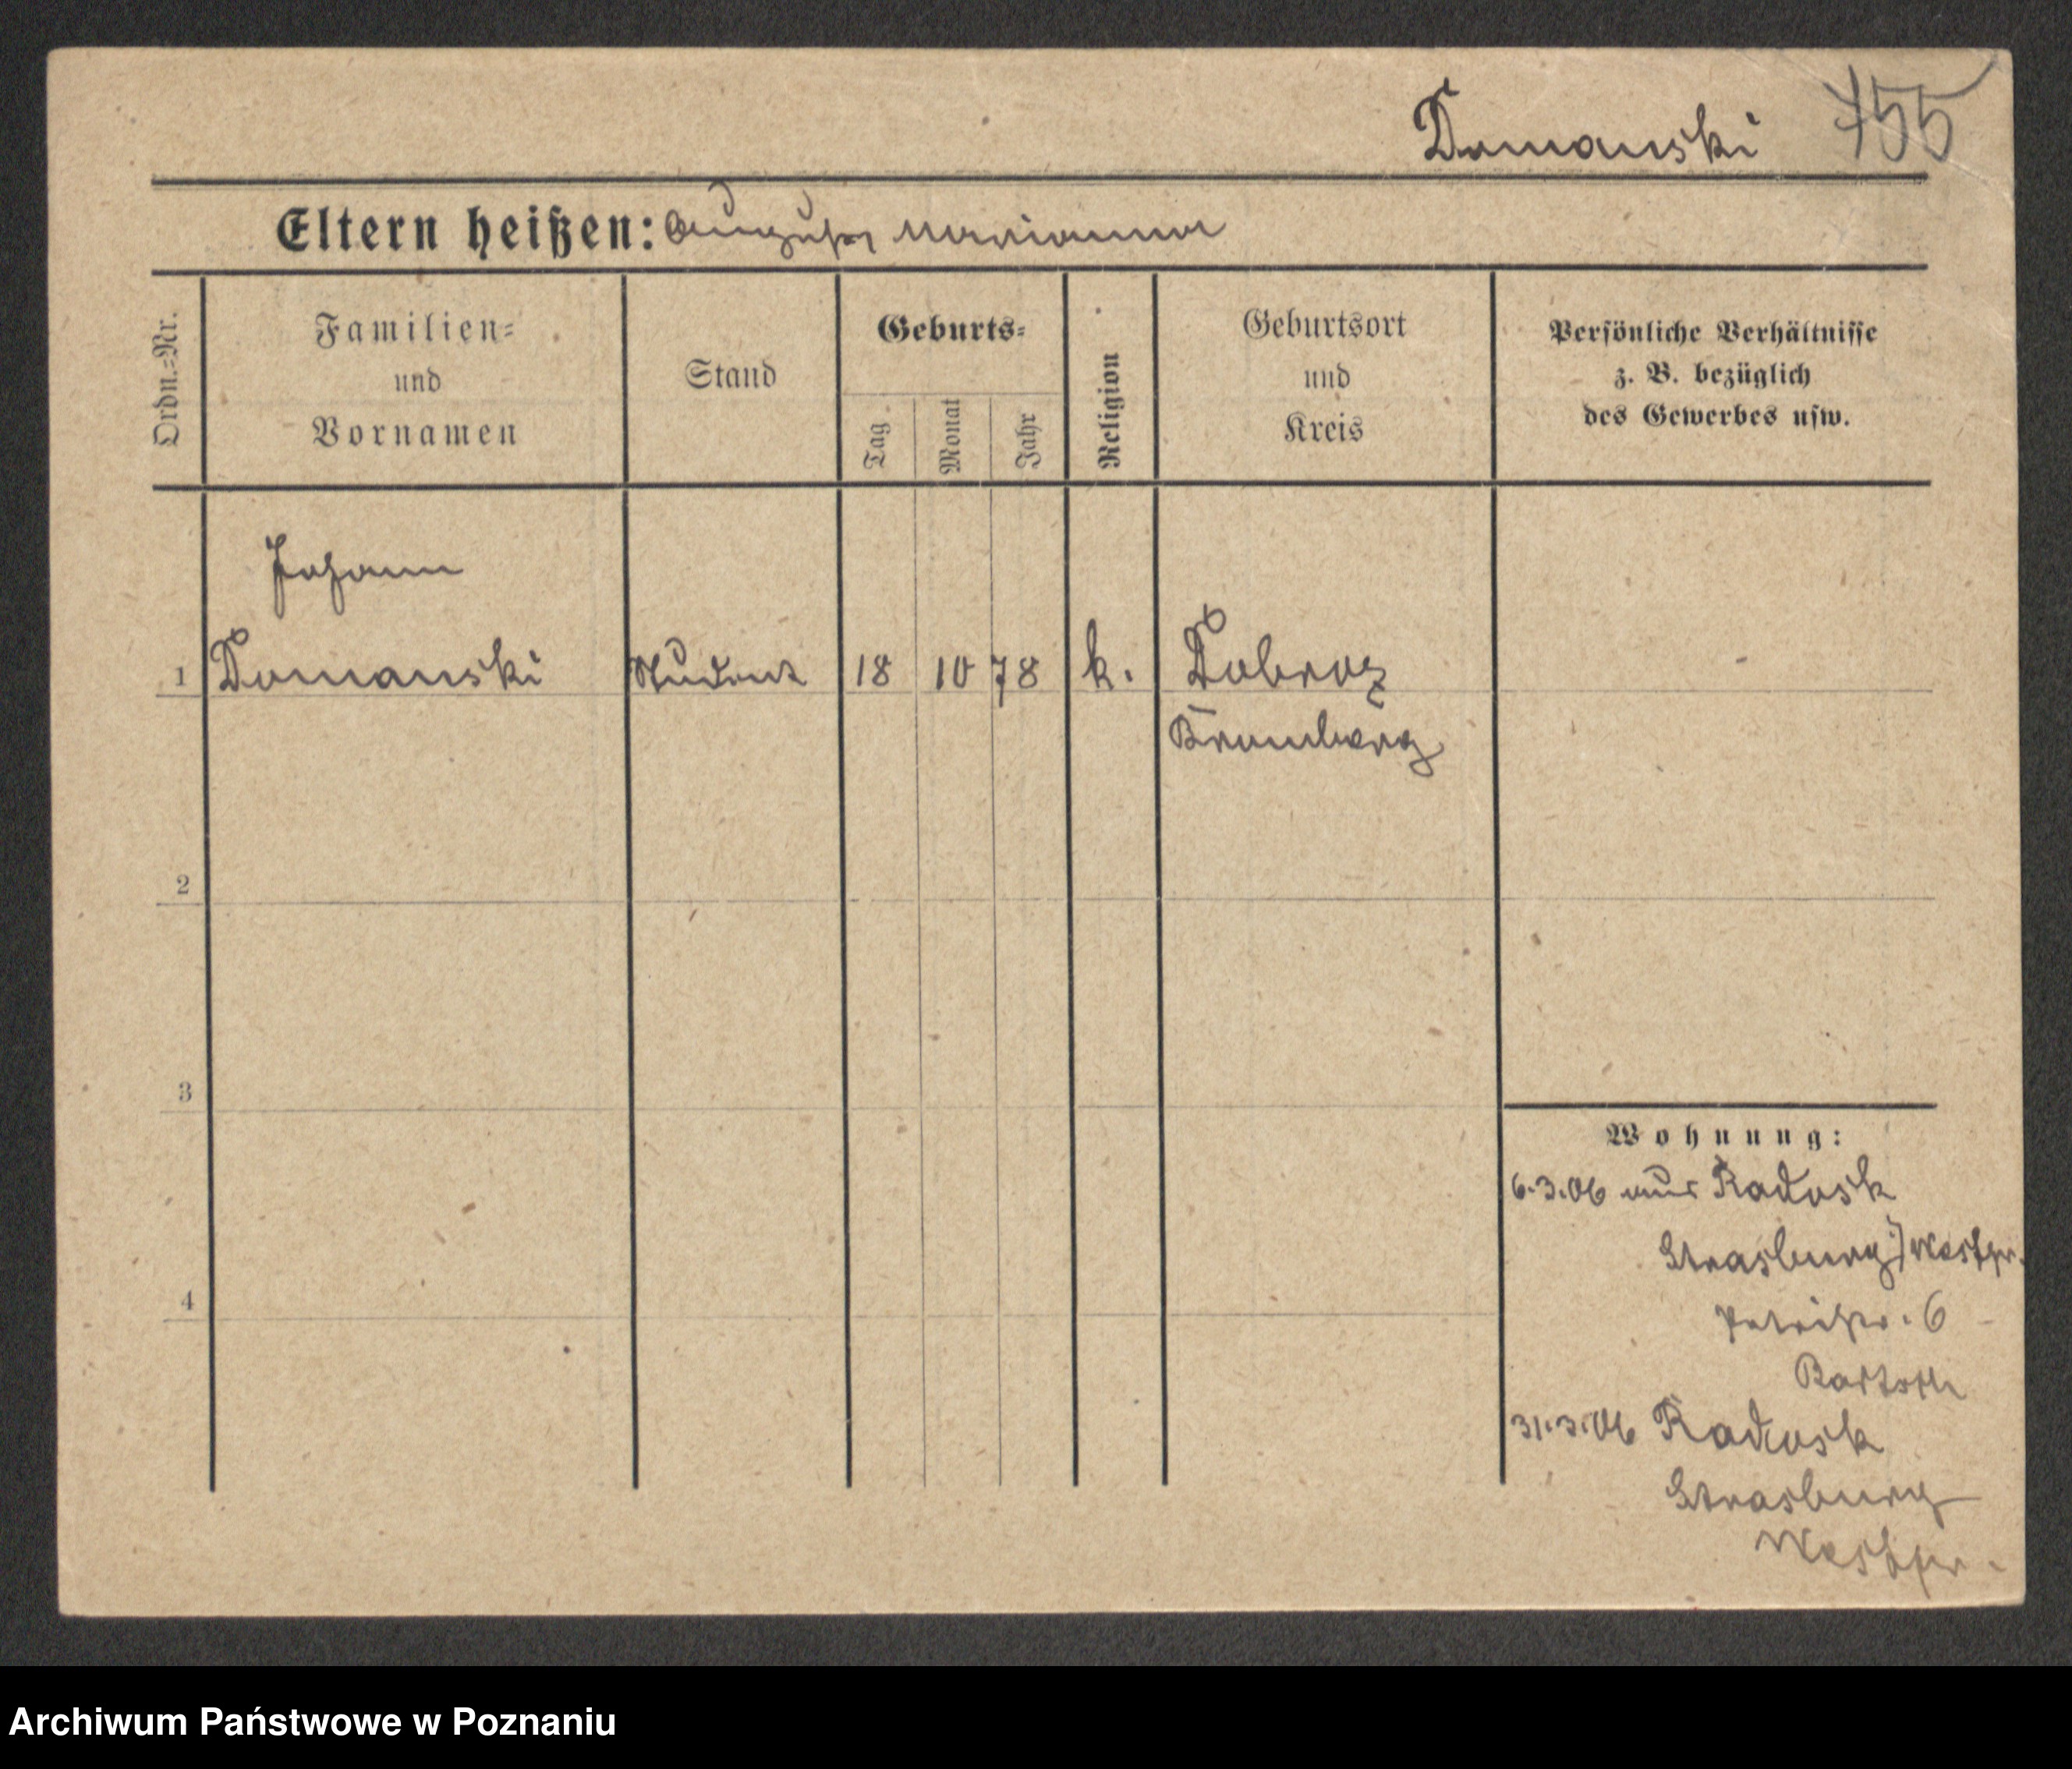 Domanski 755
Eltern heißen: August Marianna
Ordn.=Nr.
Familien=
und
Vornamen
Stand
Geburts=
Tag
Monat
Jahr
Religion
Geburtsort
und
Kreis
Persönliche Verhältnisse
z. B. bezüglich
des Gewerbes usw.
Johann
1 Domanski Student 18 10 78 k.
Bromberg
2
3
4
Wohnung:
6.3.06 aus Radosk
Strasburg Westpr.
6
31.3.06 Radosk
Strasburg
Westpr.
Archiwum Państwowe w Poznaniu